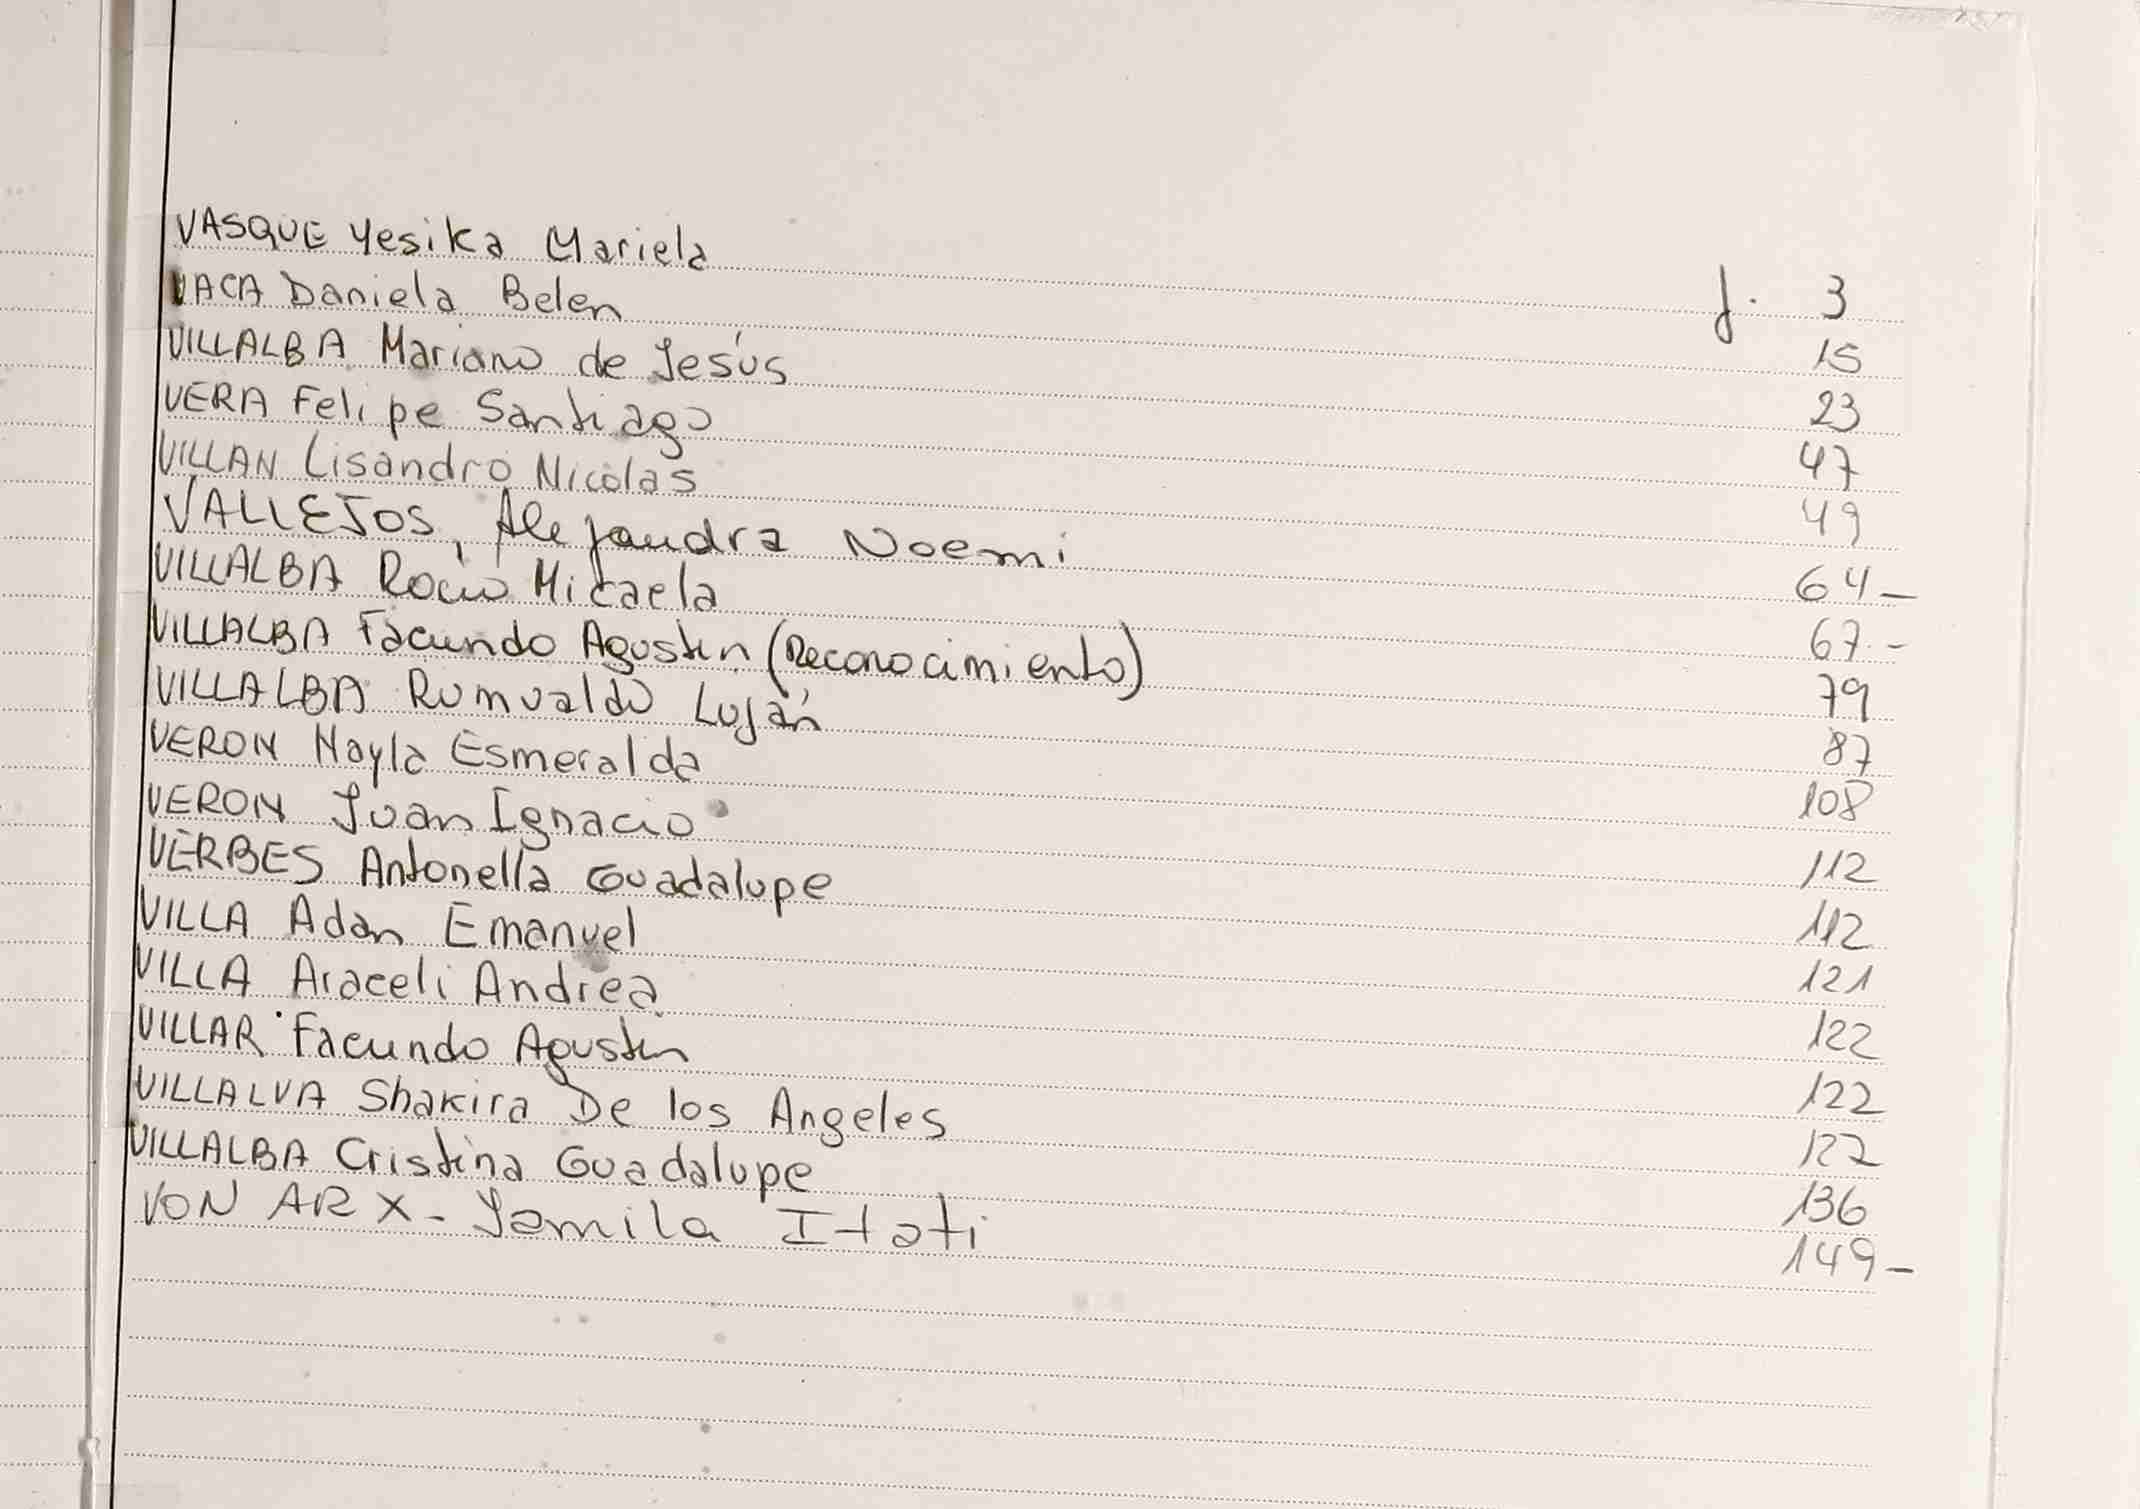 VASQUE Yesika Mariela f. 3
VACA Daniela Belen 15
VILLALBA Mariano de Jesús 23
VERA Felipe Santiago 47
VILLAN Lisandro Nicolas 49
VALLEJOS, Alejandra Noemi 64-
VILLALBA Rocío Micaela 67.-
VILLALBA Facundo Agustin (Reconocimiento) 79
VILLALBA Romualdo Luján 87
VERON Nayla Esmeralda 108
VERON Juan Ignacio 112
VERBES Antonella Guadalupe 112
VILLA Adan Emanuel 121
VILLA Araceli Andrea 122
VILLAR Facundo Agustin 122
VILLALVA Shakira De los Angeles 127
VILLALBA Cristina Guadalupe 136
VON ARX - Yamila Itati 149-